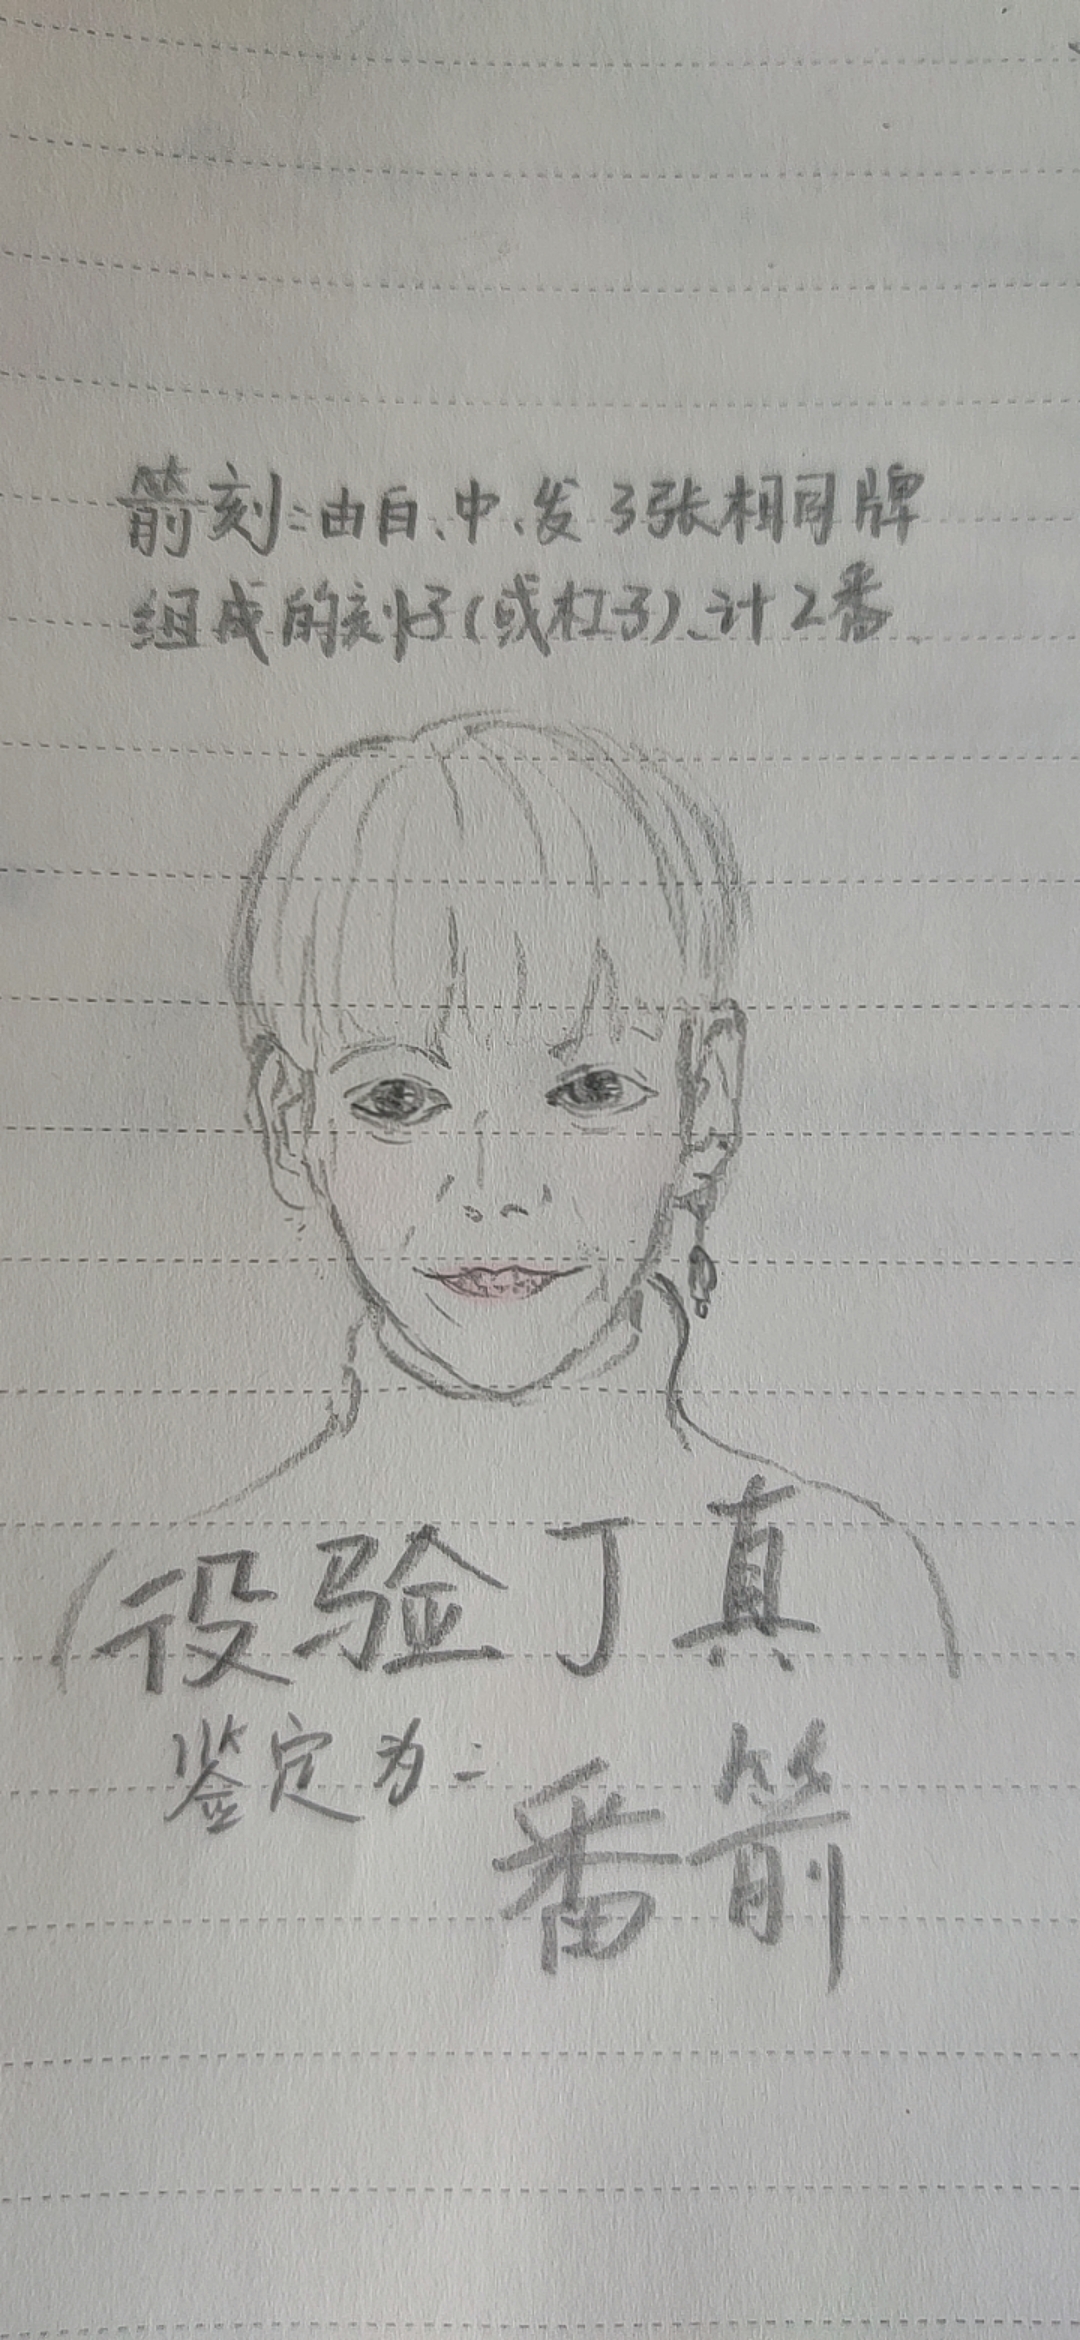 箭刻:由白、中、发3张相同牌
组成的刻子(或杠子)、计2番
役验丁真
鉴定为:
番箭